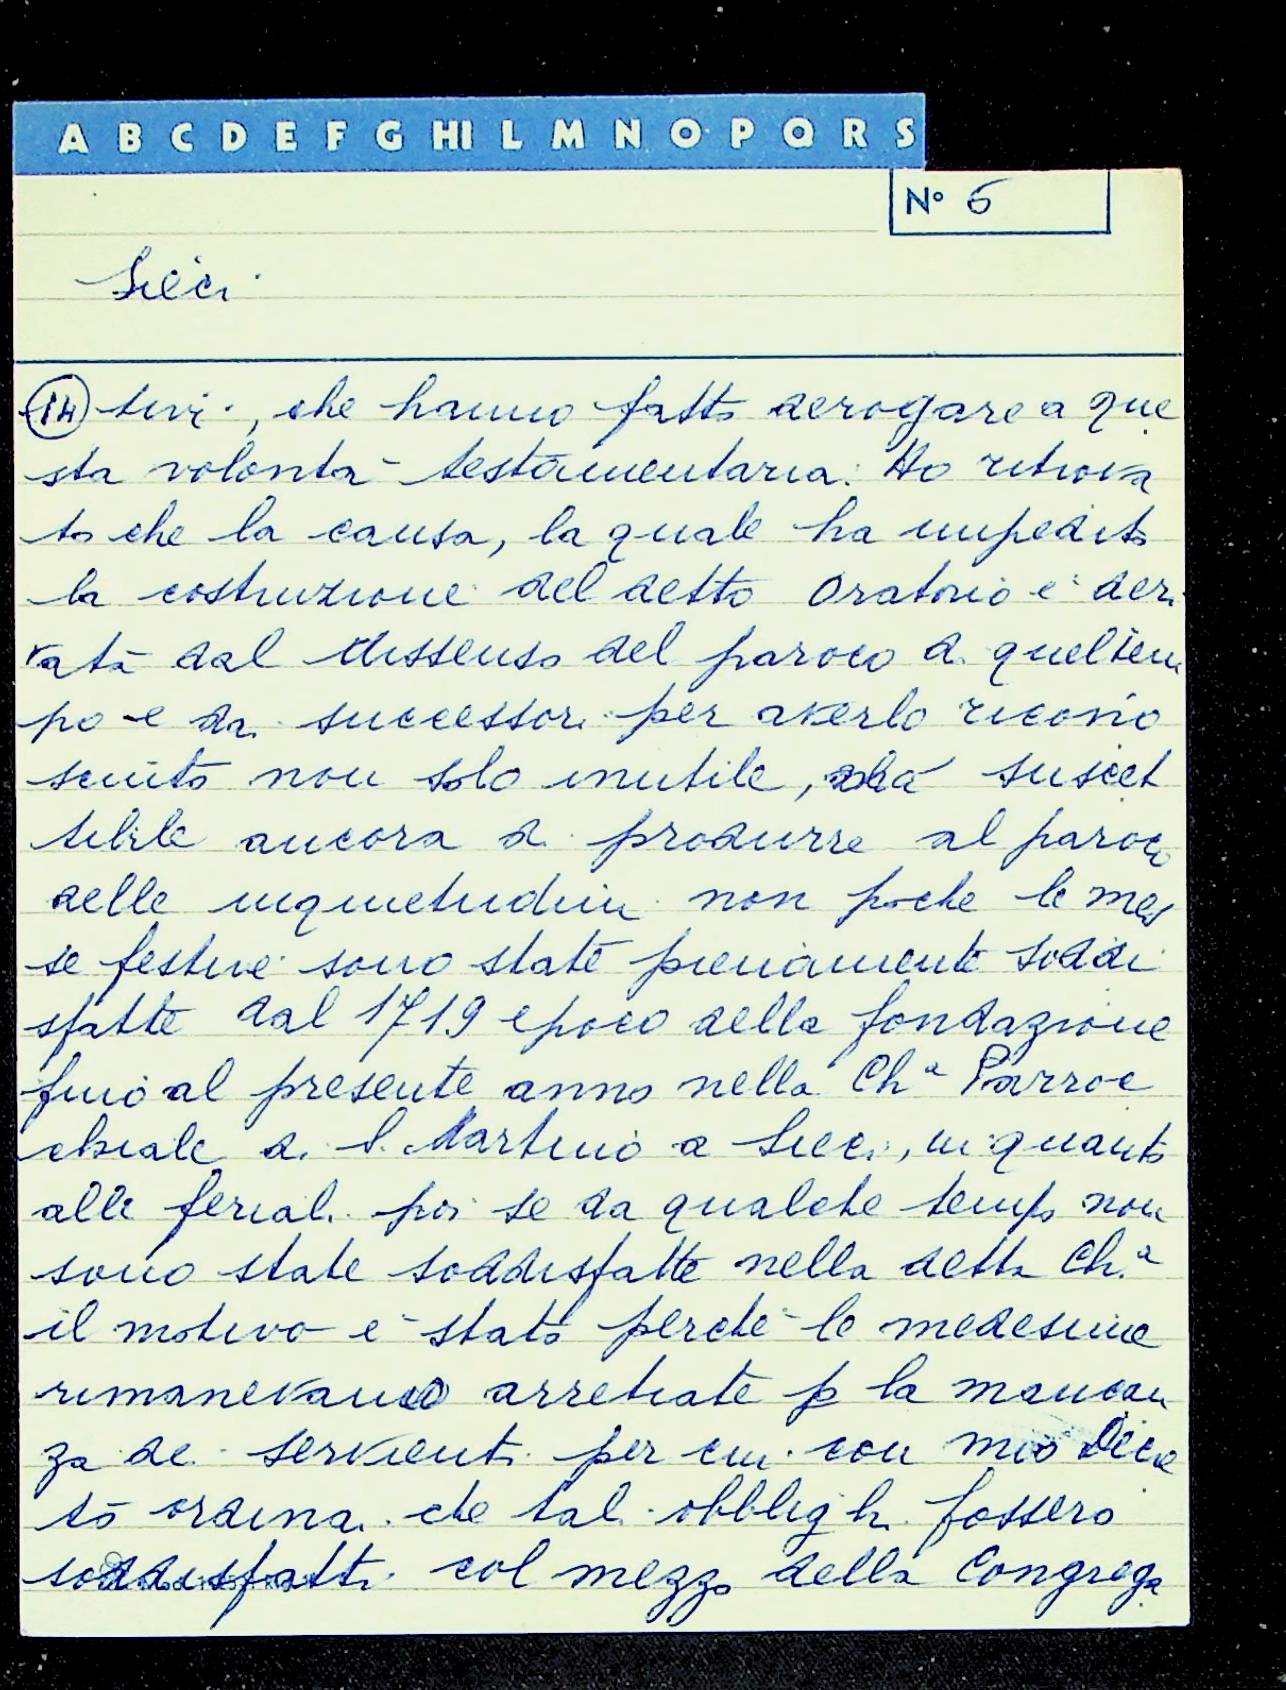 A B C D E F G HI L M N O P Q R S
Nº 6
Sieci
14 tivi, che hanno fatto derogare a que
sta volontà testamentaria. Ho ritrova
to che la causa, la quale ha impedito
la costruzione del detto Oratorio è deri
vata dal dissenso del paroco di quel tem
po e da successori per averlo ricono
sciuto non solo inutile, ma suscet
tibile ancora di produrre al paroco
delle inquietudini non poche le mes
se festive sono state pienamente soddi
sfatte dal 1719 epoca della fondazione
fino al presente anno nella Chª Parroc
chiale di S. Martino a Sieci, in quanto
alle feriali poi se da qualche tempo non
sono state soddisfatte nella detta Ch.ª
il motivo è stato perchè le medesime
rimanevano arretrate p la mancan
za de serventi per cui con mio Decre
to ordinai che tali obblighi fossero
soddisfatti col mezzo della Congrega